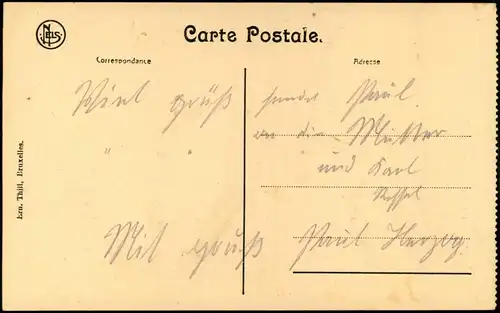 NELS
Carte Postale.
Correspondance
Adresse
Viel grüß sendet Paul.
an die Mutter
" "
und Karl
Mit gruß Paul Herzog.
Ern. Thill, Bruxelles.